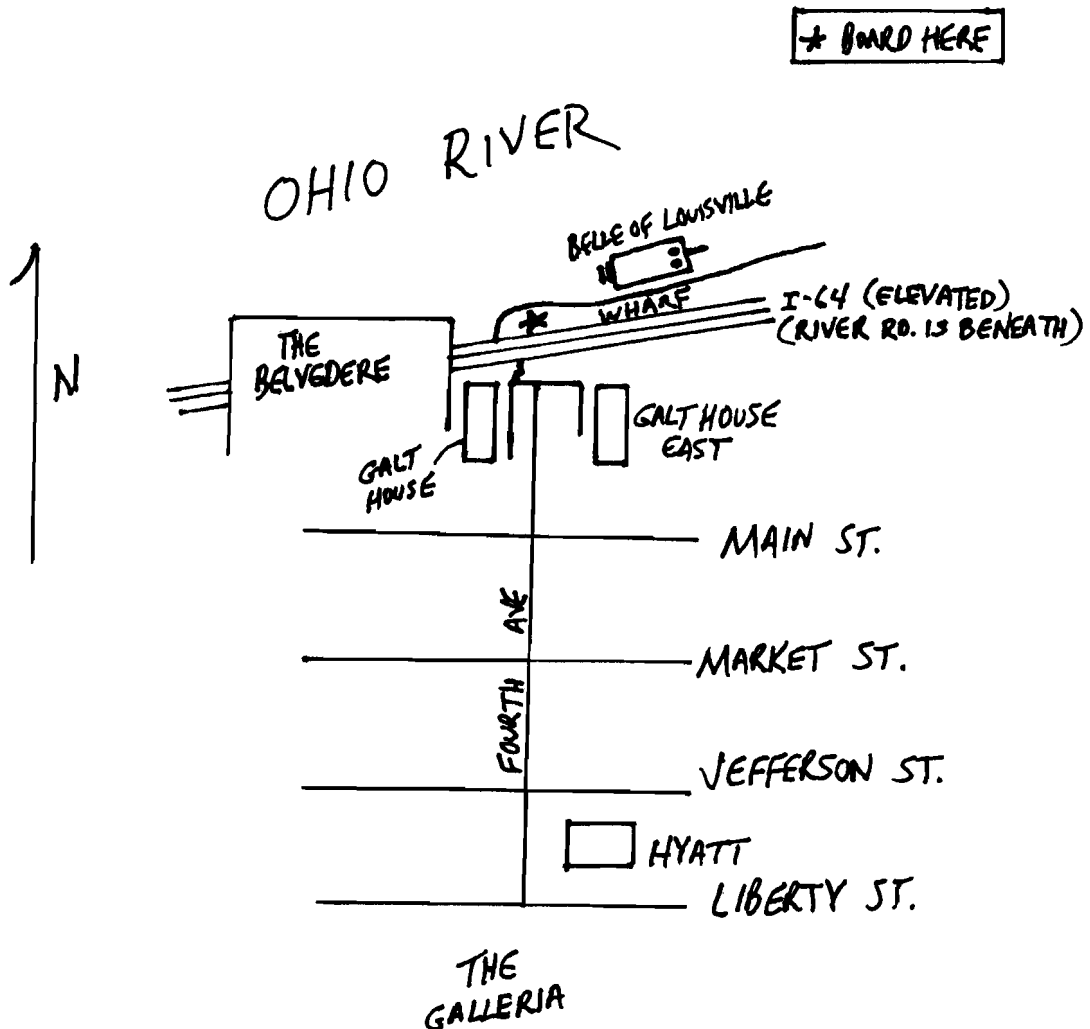 * BOARD HERE
OHIO RIVER
BELLE OF LOUISVILLE
WHARF
*
I-64 (ELEVATED)
(RIVER RD. IS BENEATH)
N
THE
BELVEDERE
GALT
HOUSE
GALT HOUSE
EAST
MAIN ST.
FOURTH AVE
MARKET ST.
JEFFERSON ST.
HYATT
LIBERTY ST.
THE
GALLERIA